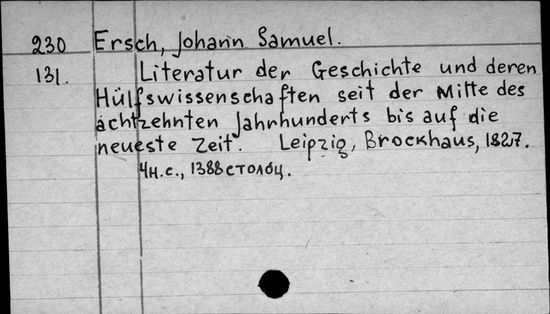 230 Ersch, Johann Samuel.
131. Literatur der Geschichte und deren
Hülfswissenschaften seit der Mitte des
achtzehnten Jahrhunderts bis auf die
neueste Zeit. Leipzig, Brockhaus, 1827.
4н.с., 1388столбц.